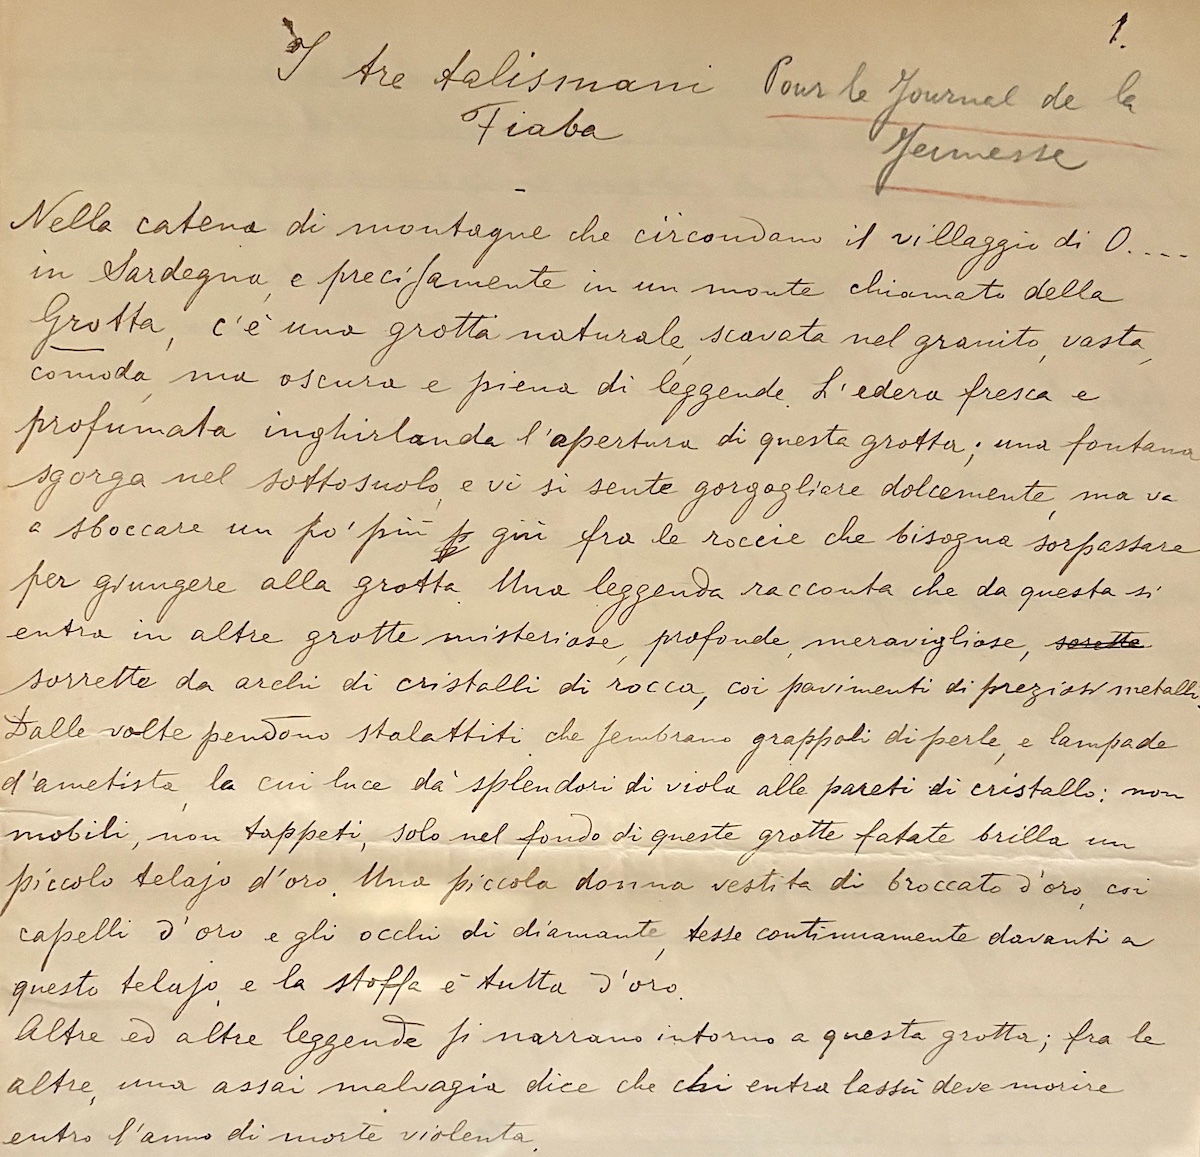 1.
I tre talismani Pour le Journal de la
Fiaba Jeunesse
Nella catena di montagne che circondano il villaggio di O....
in Sardegna, e precisamente in un monte chiamato della
Grotta, c'è una grotta naturale, scavata nel granito, vasta,
comoda, ma oscura e piena di leggende. L'edera fresca e
profumata inghirlanda l'apertura di questa grotta; una fontana
sgorga nel sottosuolo, e vi si sente gorgogliare dolcemente, ma va
a sboccare un po' più p giù fra le roccie che bisogna sorpassare
per giungere alla grotta. Una leggenda racconta che da questa si
entra in altre grotte misteriose, profonde, meravigliose, sorette
sorrette da archi di cristalli di rocca, coi pavimenti di preziosi metalli.
Dalle volte pendono stalattiti che sembrano grappoli di perle, e lampade
d'ametista, la cui luce dà splendori di viola alle pareti di cristallo: non
mobili, non tappeti, solo nel fondo di queste grotte fatate brilla un
piccolo telajo d'oro. Una piccola donna vestita di broccato d'oro, coi
capelli d'oro e gli occhi di diamante, tesse continuamente davanti a
questo telajo, e la stoffa è tutta d'oro.
Altre ed altre leggende si narrano intorno a questa grotta; fra le
altre, una assai malvagia dice che chi entra lassù deve morire
entro l'anno di morte violenta.